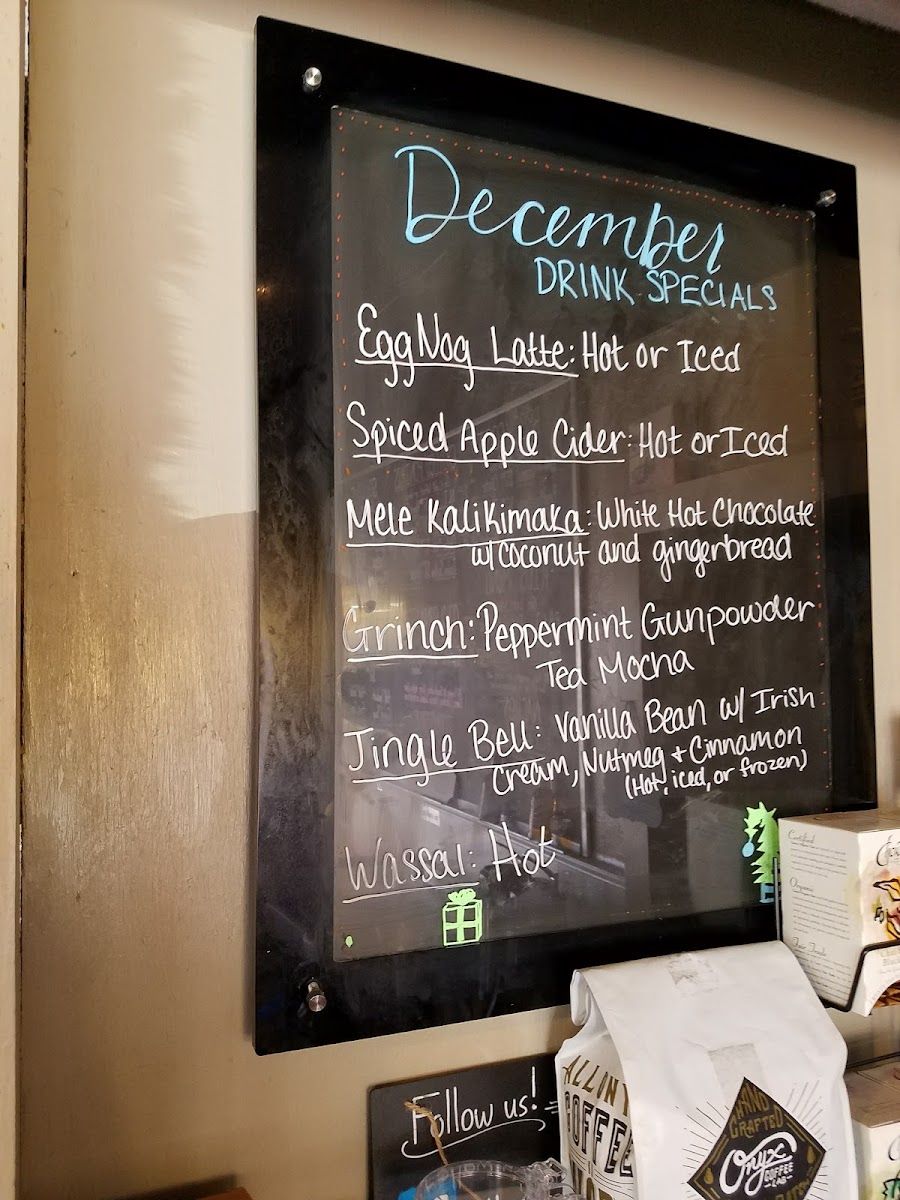 December
DRINK SPECIALS
EggNog Latte: Hot or Iced
Spiced Apple Cider: Hot or Iced
Mele Kalikimaka: White Hot Chocolate
w/ coconut and gingerbread
Grinch: Peppermint Gunpowder
Tea Mocha
Jingle Bell: Vanilla Bean w/ Irish
Cream, Nutmeg + Cinnamon
(Hot, iced, or frozen)
Wassal: Hot
Certified
Organic
Fair Trade
Follow us!
COFFEE
HAND
CRAFTED
Onyx
COFFEE
LAB